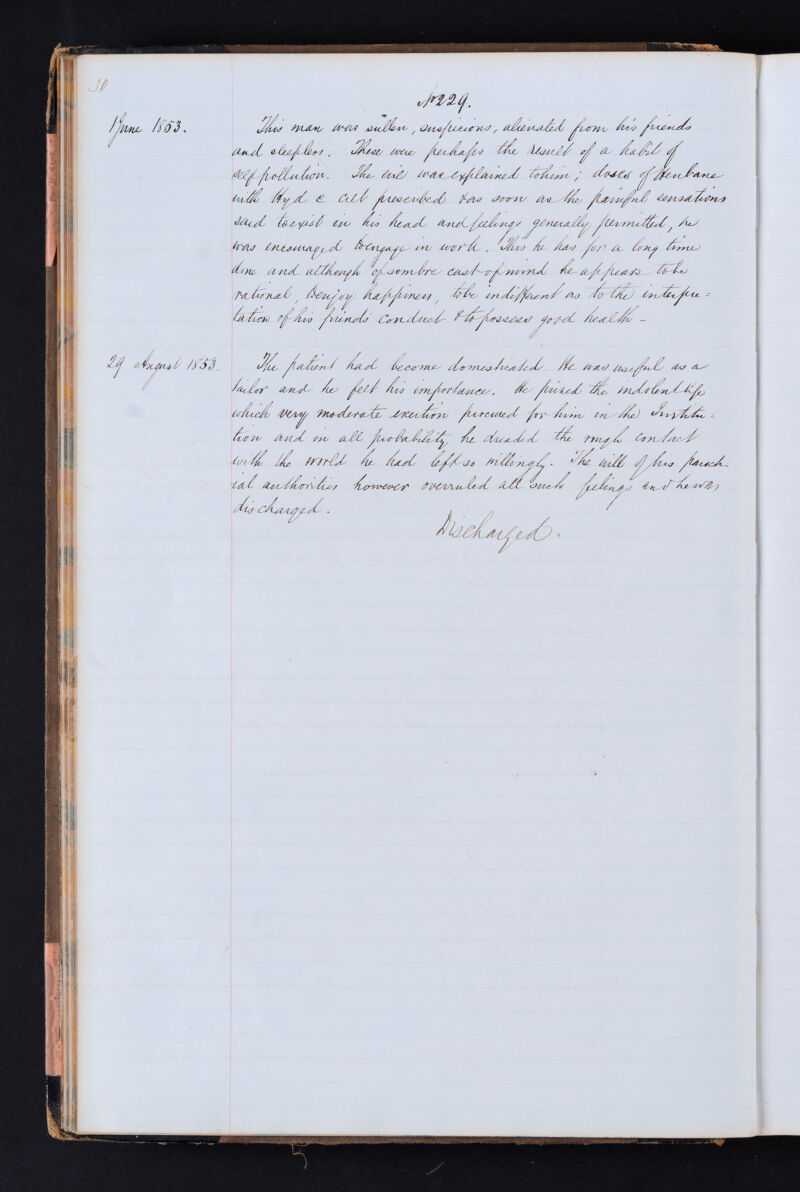 30
No 229.
1 June 1853. This man was sullen, suspicious, alienated from his friends
and sleepless. These were perhaps the result of a habit of
self pollution. The evil was explained to him; doses of Henbane
with Hyd c Cret prescribed & as soon as the painful sensations
said to exist in his head and feelings generally permitted, he
was encouraged to engage in work. This he has for a long time
done and although of sombre cast of mind he appears to be
rational, to enjoy happiness, to be indifferent as to the interpre=
tation of his friends' conduct & to possess good health –
29 August 1853. The patient had become domesticated. He was useful as a
tailor and he felt his importance. He prized the indolent life
which very moderate exertion procured for him in the Institu=
tion and in all probability he dreaded the rough contact
with the world he had left so willingly. The will of his paroch=
ial authorities however overruled all such feelings and he was
discharged.
Discharged.